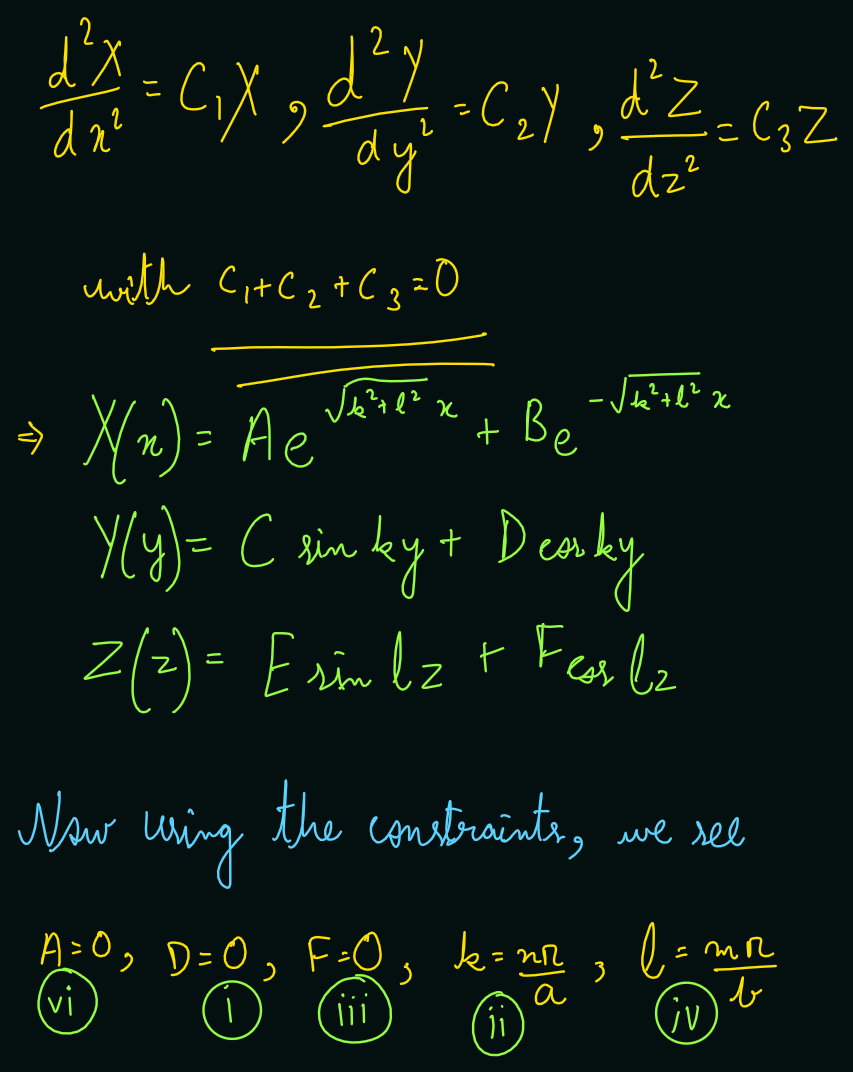 d²X/dx² = C₁X , d²Y/dy² = C₂Y , d²Z/dz² = C₃Z
with C₁+C₂+C₃=0
⇒ X(x) = Ae^(√(k²+l²) x) + Be^(-√(k²+l²) x)
Y(y) = C sin ky + D cos ky
Z(z) = E sin lz + F cos lz
Now using the constraints, we see
A=0, D=0, F=0, k = nπ/a , l = mπ/b
vi i iii ii iv